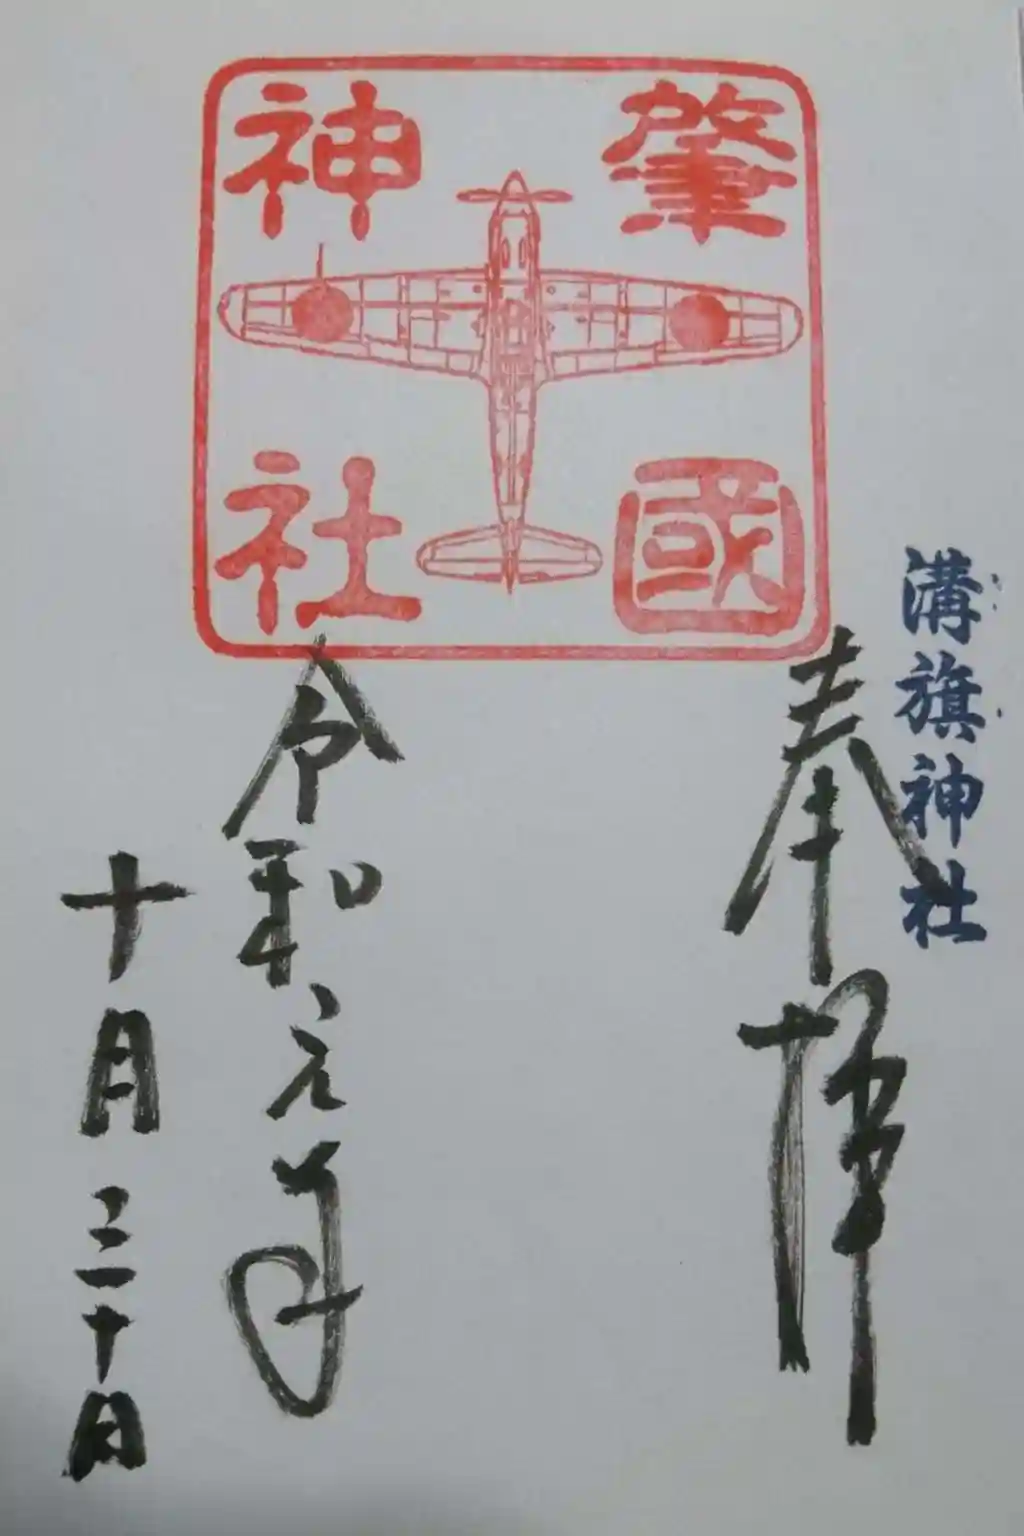 肇國
神社
溝旗神社
奉拝
令和元年
十月三十日